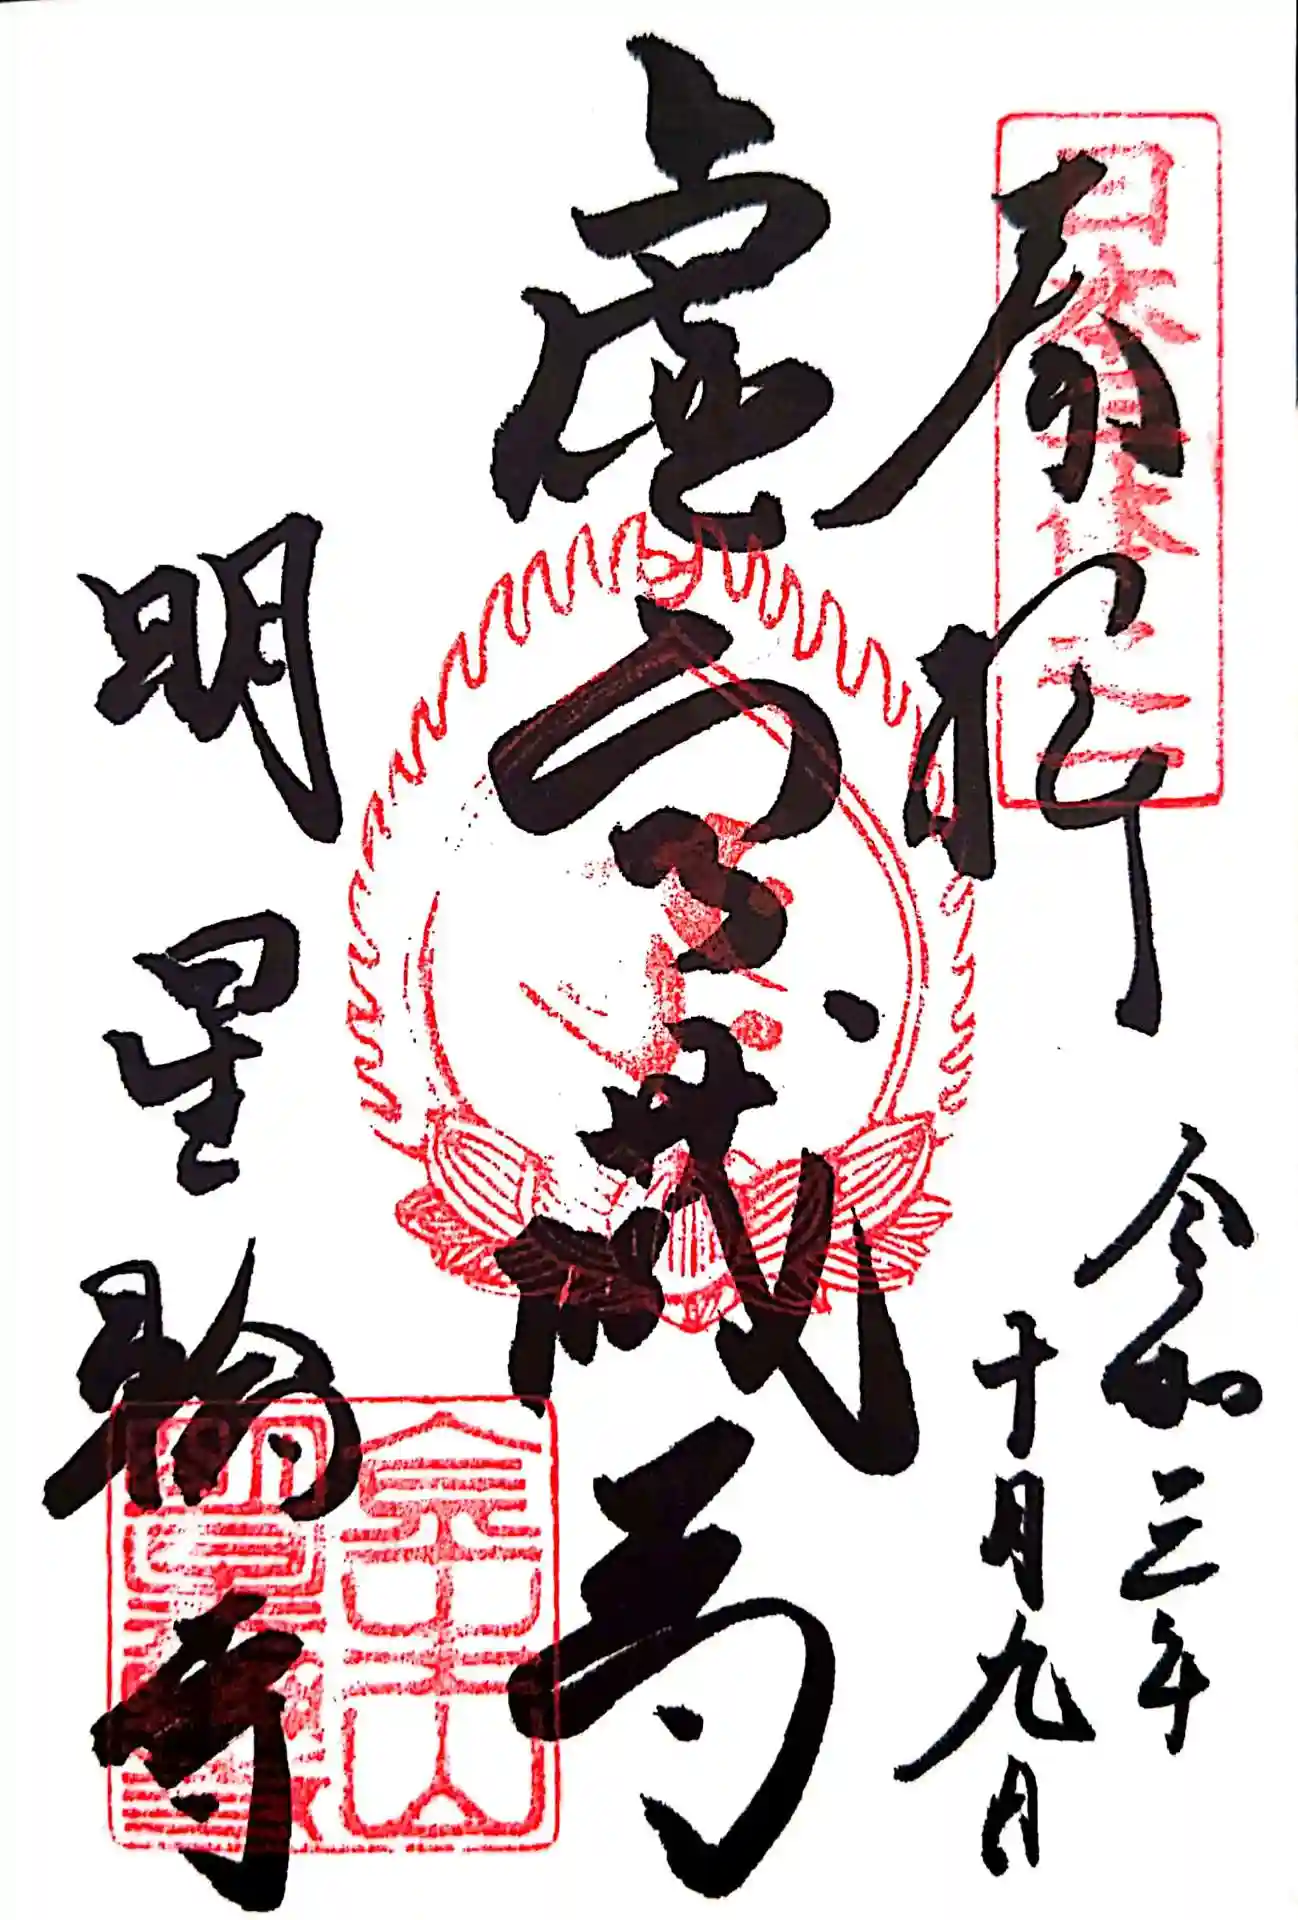 日本三体之一
奉拝
令和三年
十月九日
虚空蔵尊
明星輪寺
金生山
明星輪寺